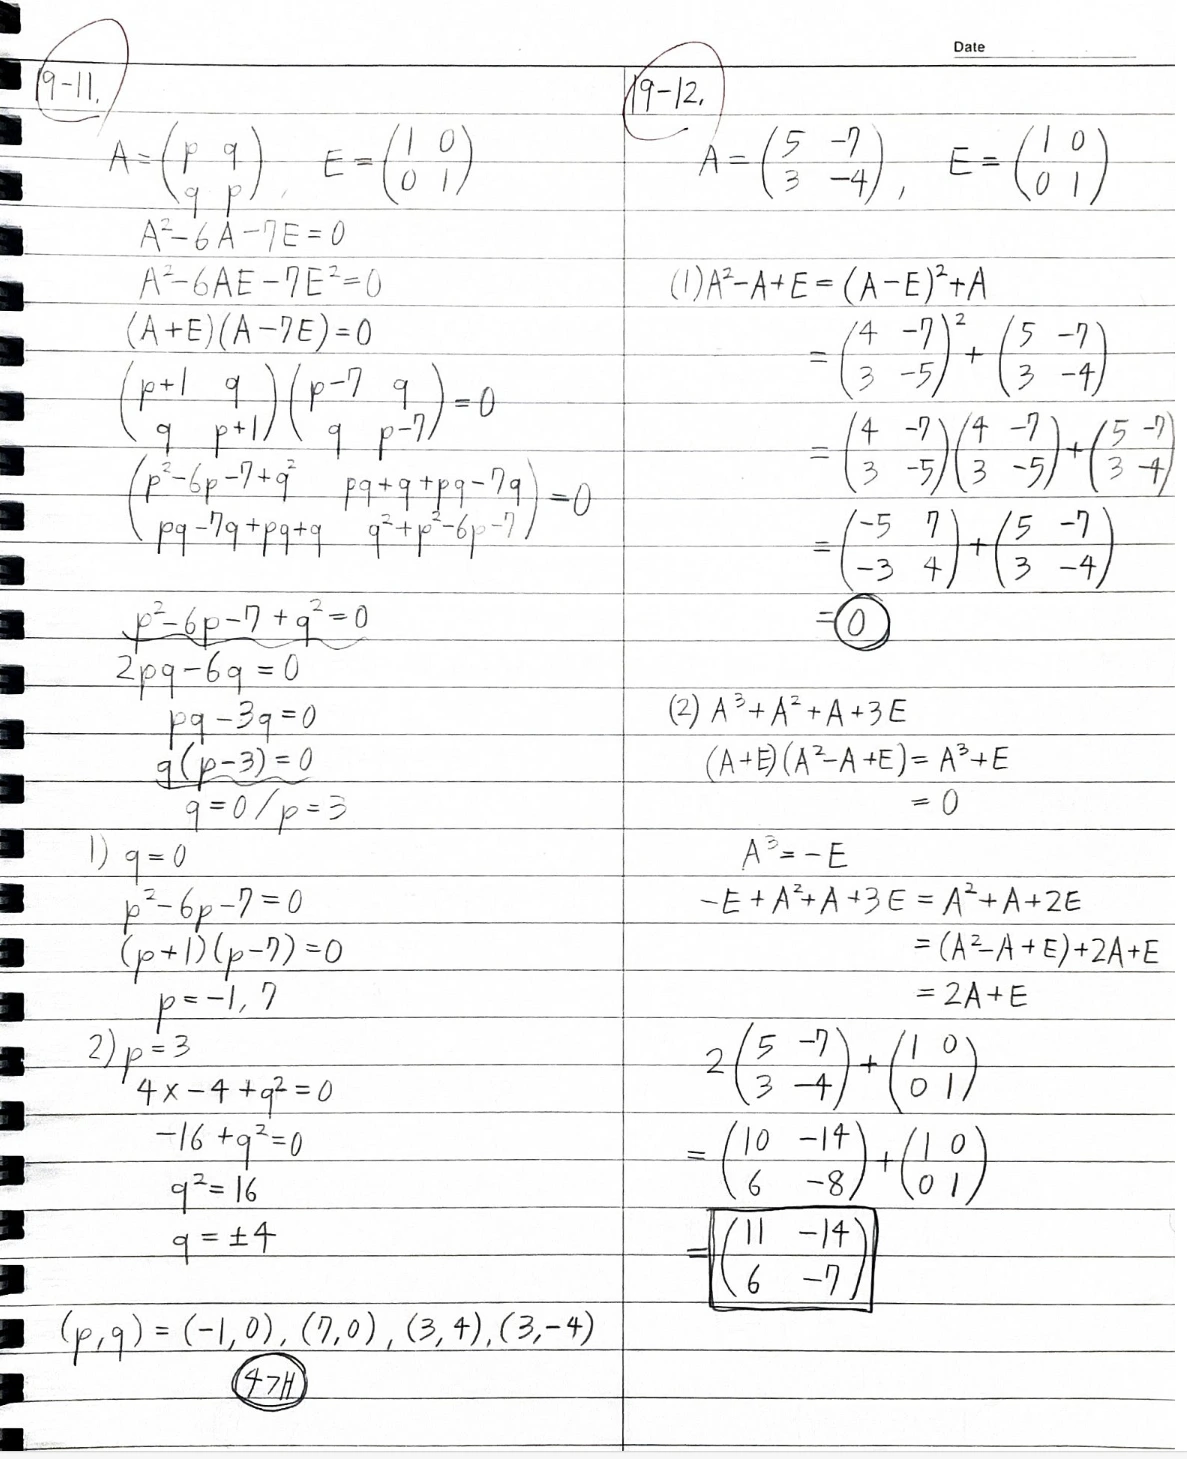 Date
9-11.
A = (p q
q p), E = (1 0
0 1)
A²-6A-7E=0
A²-6AE-7E²=0
(A+E)(A-7E)=0
(p+1 q
q p+1)(p-7 q
q p-7)=0
(p²-6p-7+q² pq+q+pq-7q
pq-7q+pq+q q²+p²-6p-7)=0
p²-6p-7+q²=0
2pq-6q=0
pq-3q=0
q(p-3)=0
q=0/p=3
1) q=0
p²-6p-7=0
(p+1)(p-7)=0
p=-1, 7
2) p=3
4×-4+q²=0
-16+q²=0
q²=16
q=±4
(p,q)=(-1,0), (7,0), (3,4), (3,-4)
4개
9-12.
A = (5 -7
3 -4), E = (1 0
0 1)
(1) A²-A+E=(A-E)²+A
= (4 -7
3 -5)² + (5 -7
3 -4)
= (4 -7
3 -5)(4 -7
3 -5)+(5 -7
3 -4)
= (-5 7
-3 4)+(5 -7
3 -4)
= 0
(2) A³+A²+A+3E
(A+E)(A²-A+E)=A³+E
= 0
A³=-E
-E+A²+A+3E=A²+A+2E
=(A²-A+E)+2A+E
=2A+E
2(5 -7
3 -4)+(1 0
0 1)
= (10 -14
6 -8)+(1 0
0 1)
= (11 -14
6 -7)